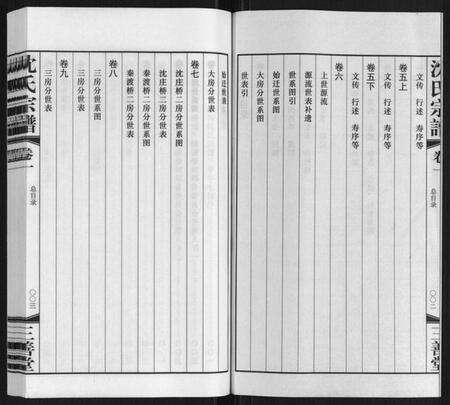 沈氏宗譜
卷一
总目录
〇〇二
三善堂
文传 行述 寿序等
卷五上
文传 行述 寿序等
卷五下
文传 行述 寿序等
卷六
上世源流
源流世表补遗
世系图
始迁世系图
大房分世系图
世表引
始迁世表
大房分世表
卷七
沈庄桥二房分世系图
沈庄桥二房分世表
秦渡桥二房分世系图
秦渡桥二房分世表
卷八
三房分世系图
三房分世表
卷九
三房分世表
沈氏宗譜
卷一
总目录
〇〇三
三善堂